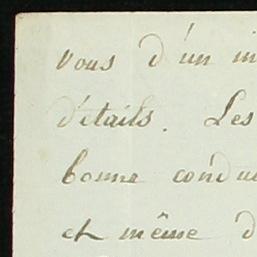 vous d'un in
détails. Les
bonne condu
et même d